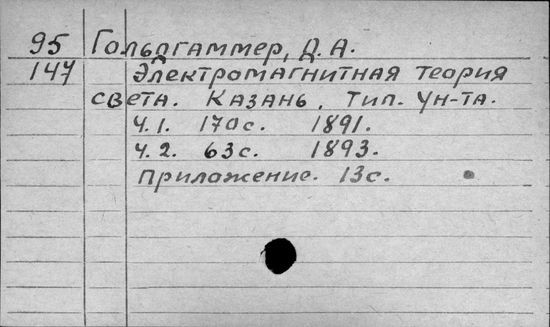 95 Гольдгаммер, Д. А.
147 Электромагнитная теория
света. Казань, тип. Ун-та.
Ч.1. 170с. 1891.
Ч.2. 63с. 1893.
Приложение. 13с.